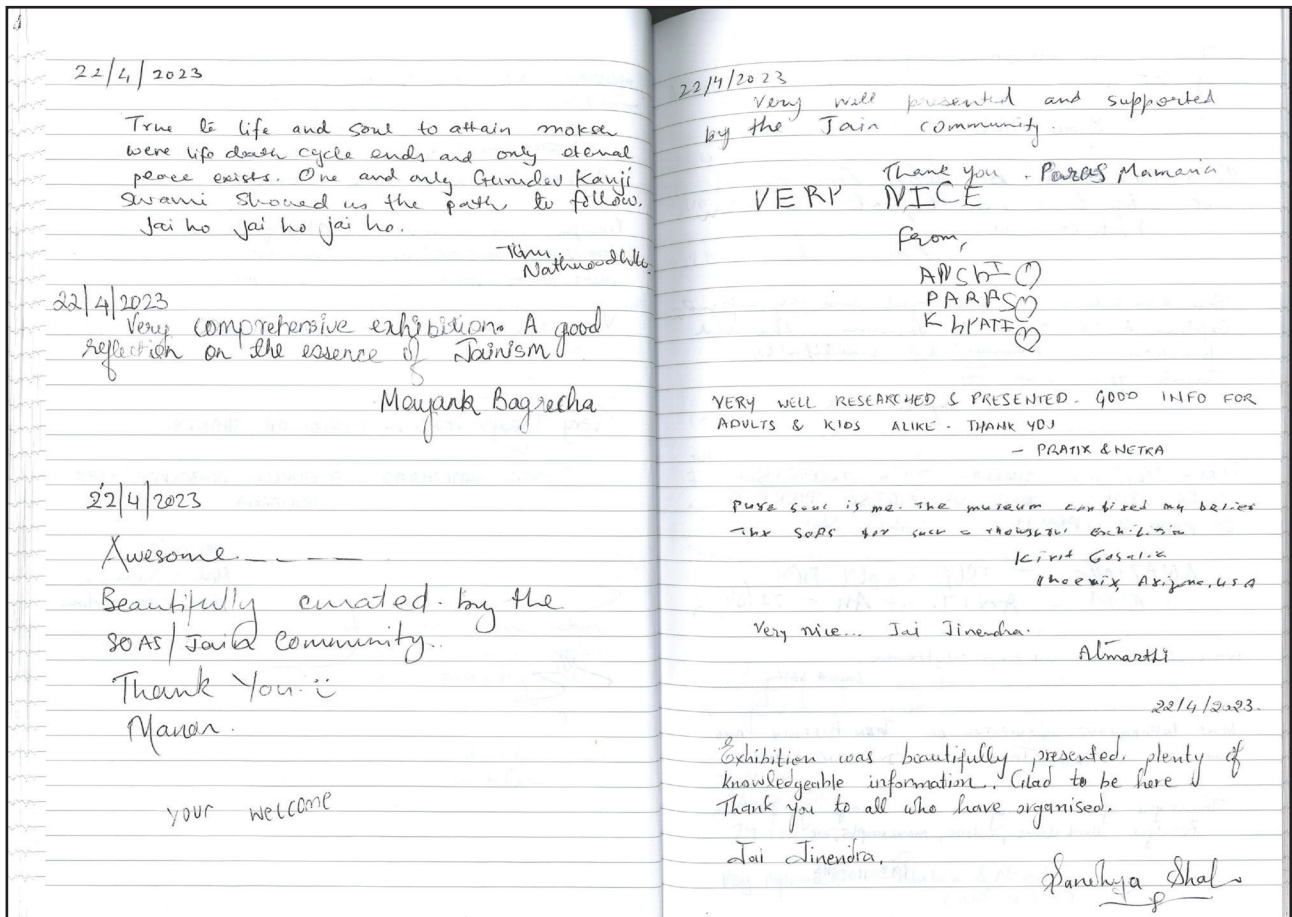 22/4/2023
True to life and soul to attain moksh
were life death cycle ends and only eternal
peace exists. One and only Gurudev Kanji
Swami Showed us the path to follow.
Jai ho Jai ho jai ho.
22/4/2023
Very comprehensive exhibition. A good
reflection on the essence of Jainism
Mayank Bagrecha
22/4/2023
Awesome -----
Beautifully curated by the
SOAS/Jain Community..
Thank You
Manan.
your welcome
22/4/2023
Very well presented and supported
by the Jain community.
Thank you. Paras Mamania
VERY NICE
From,
ANShI
PARAS
KhYATI
VERY WELL RESEARCHED & PRESENTED. GOOD INFO FOR
ADULTS & KIDS ALIKE. THANK YOU
- PRATIK & NETRA
Pure soul is me. The museum my belief
Thx SOAS for such a exhibition
Kirit Gosalia
Phoenix, Arizona, USA
Very nice... Jai Jinendra.
Atmarthi
22/4/2023.
Exhibition was beautifully presented, plenty of
knowledgeable information. Glad to be here
Thank you to all who have organised.
Jai Jinendra.
Sandhya Shah